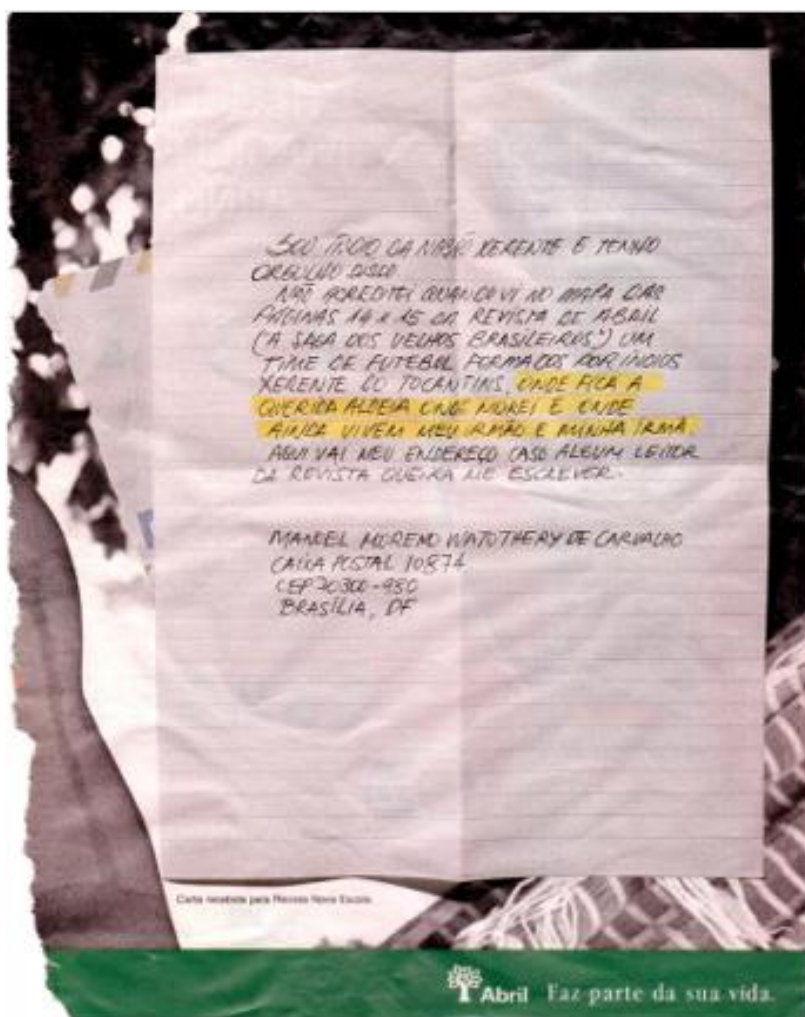 SOU ÍNDIO DA NAÇÃO XERENTE E TENHO
ORGULHO DISSO.
NÃO ACREDITEI QUANDO VI NO MAPA DAS
PÁGINAS 14 E 15 DA REVISTA DE ABRIL
("A SAGA DOS VELHOS BRASILEIROS") UM
TIME DE FUTEBOL FORMADOS POR ÍNDIOS
XERENTE DO TOCANTINS, ONDE FICA A
QUERIDA ALDEIA ONDE MOREI E ONDE
AINDA VIVEM MEU IRMÃO E MINHA IRMÃ.
AQUI VAI MEU ENDEREÇO CASO ALGUM LEITOR
DA REVISTA QUEIRA ME ESCREVER.
MANOEL MORENO WATOTHERY DE CARVALHO
CAIXA POSTAL 10874
CEP 70300-980
BRASÍLIA, DF
Carta recebida pela Revista Nova Escola.
Abril Faz parte da sua vida.